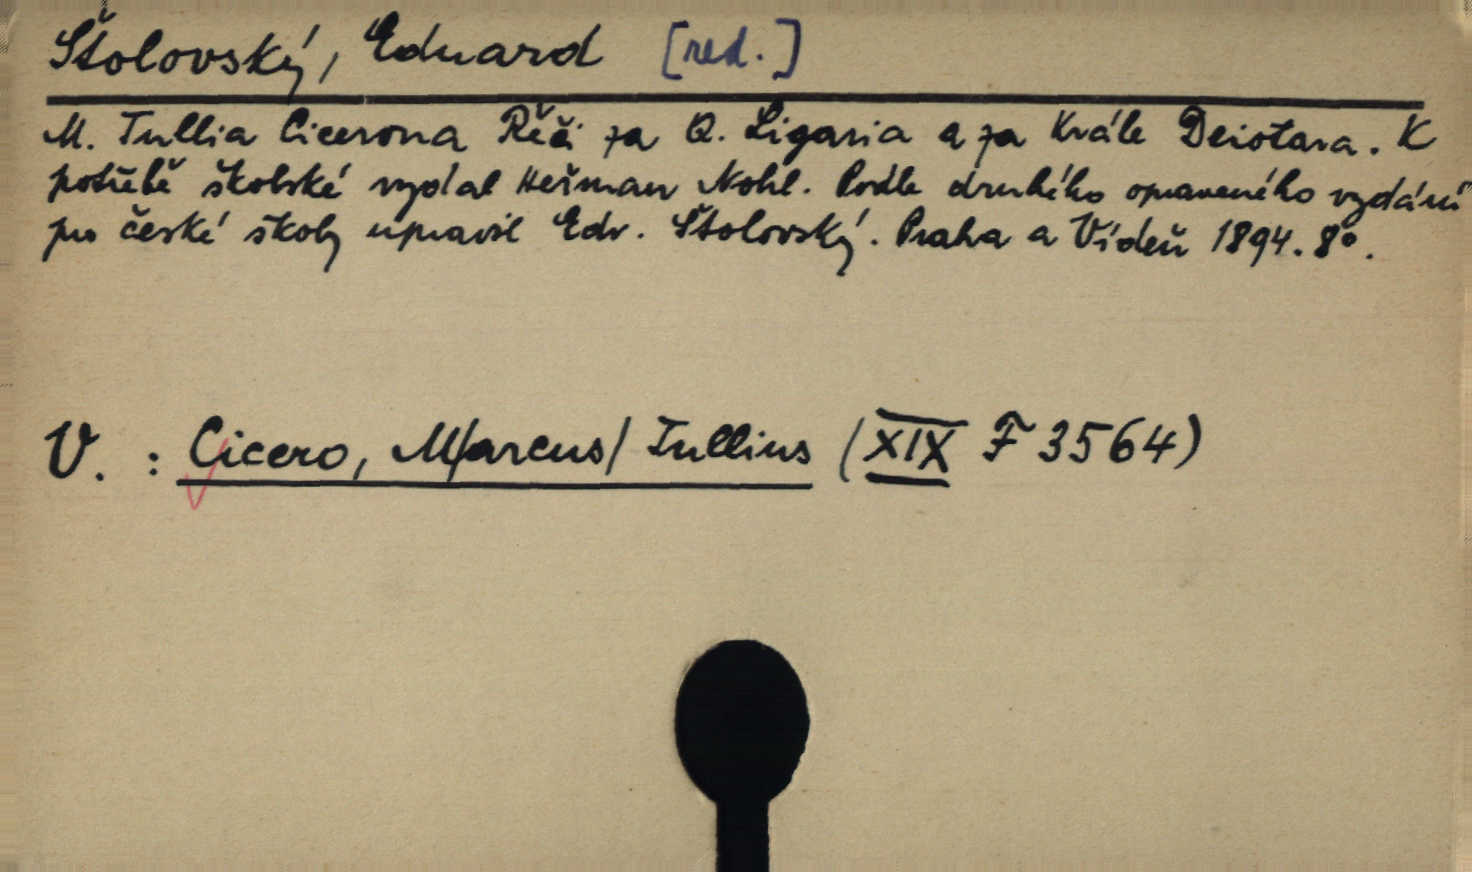 Štolovský, Eduard [red.]
M. Tullia Cicerona Řeči za Q. Ligaria a za Krále Deiotara. K
potřebě školské vydal Heřman Nohl. Podle druhého opraveného vydání
pro české školy upravil Edv. Štolovský. Praha a Vídeň 1894. 8°.
V. : Cicero, M/arcus/ Tullius (XIX F 3564)